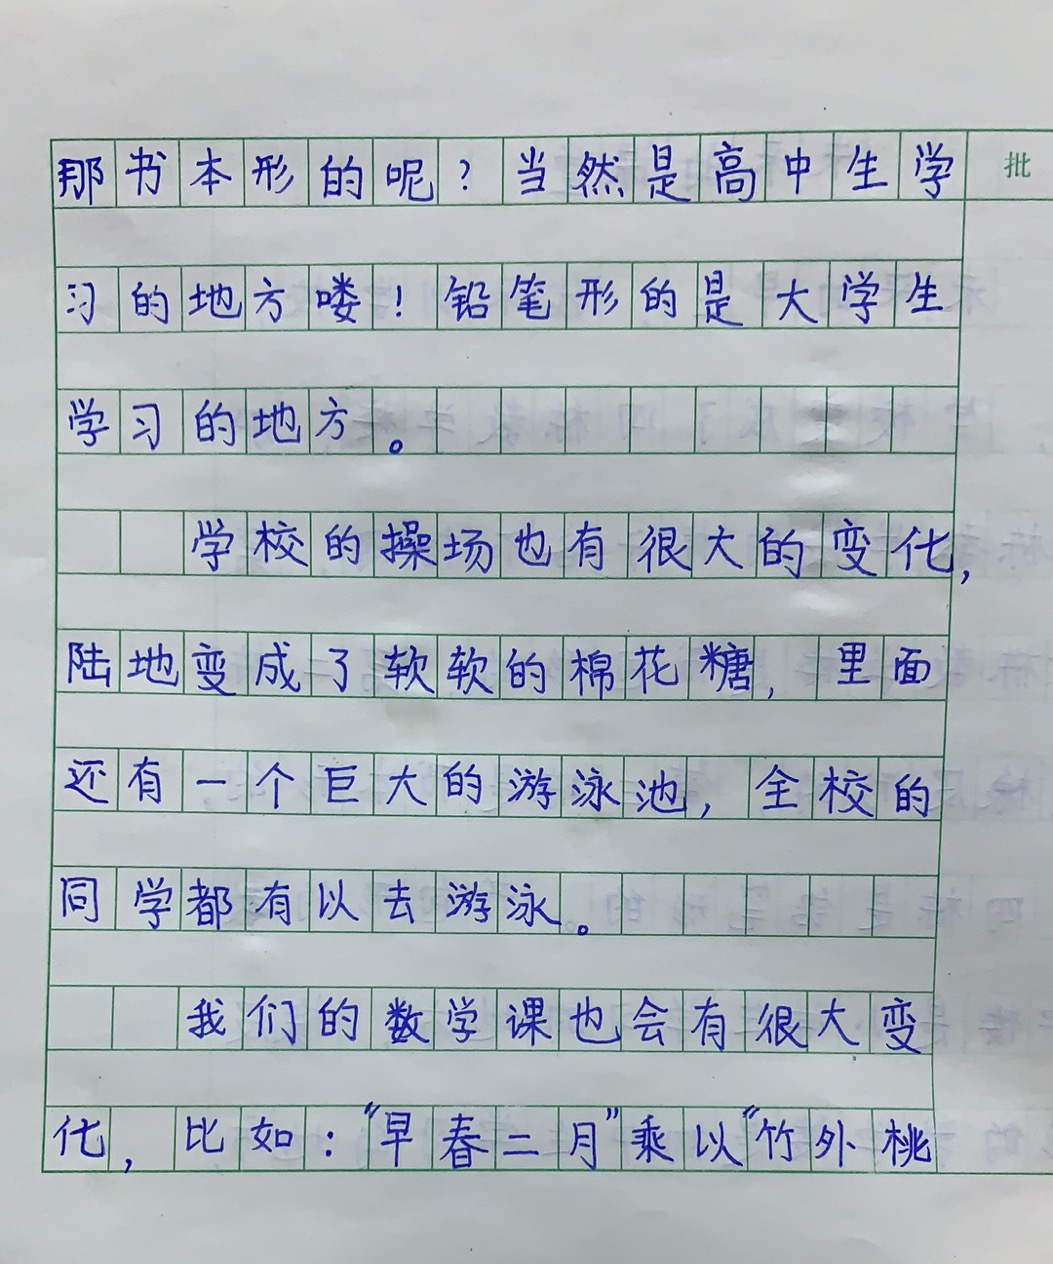 那书本形的呢?当然是高中生学
批
习的地方喽!铅笔形的是大学生
学习的地方。
学校的操场也有很大的变化,
陆地变成了软软的棉花糖,里面
还有一个巨大的游泳池,全校的
同学都有以去游泳。
我们的数学课也会有很大变
化,比如:“早春二月”乘以“竹外桃